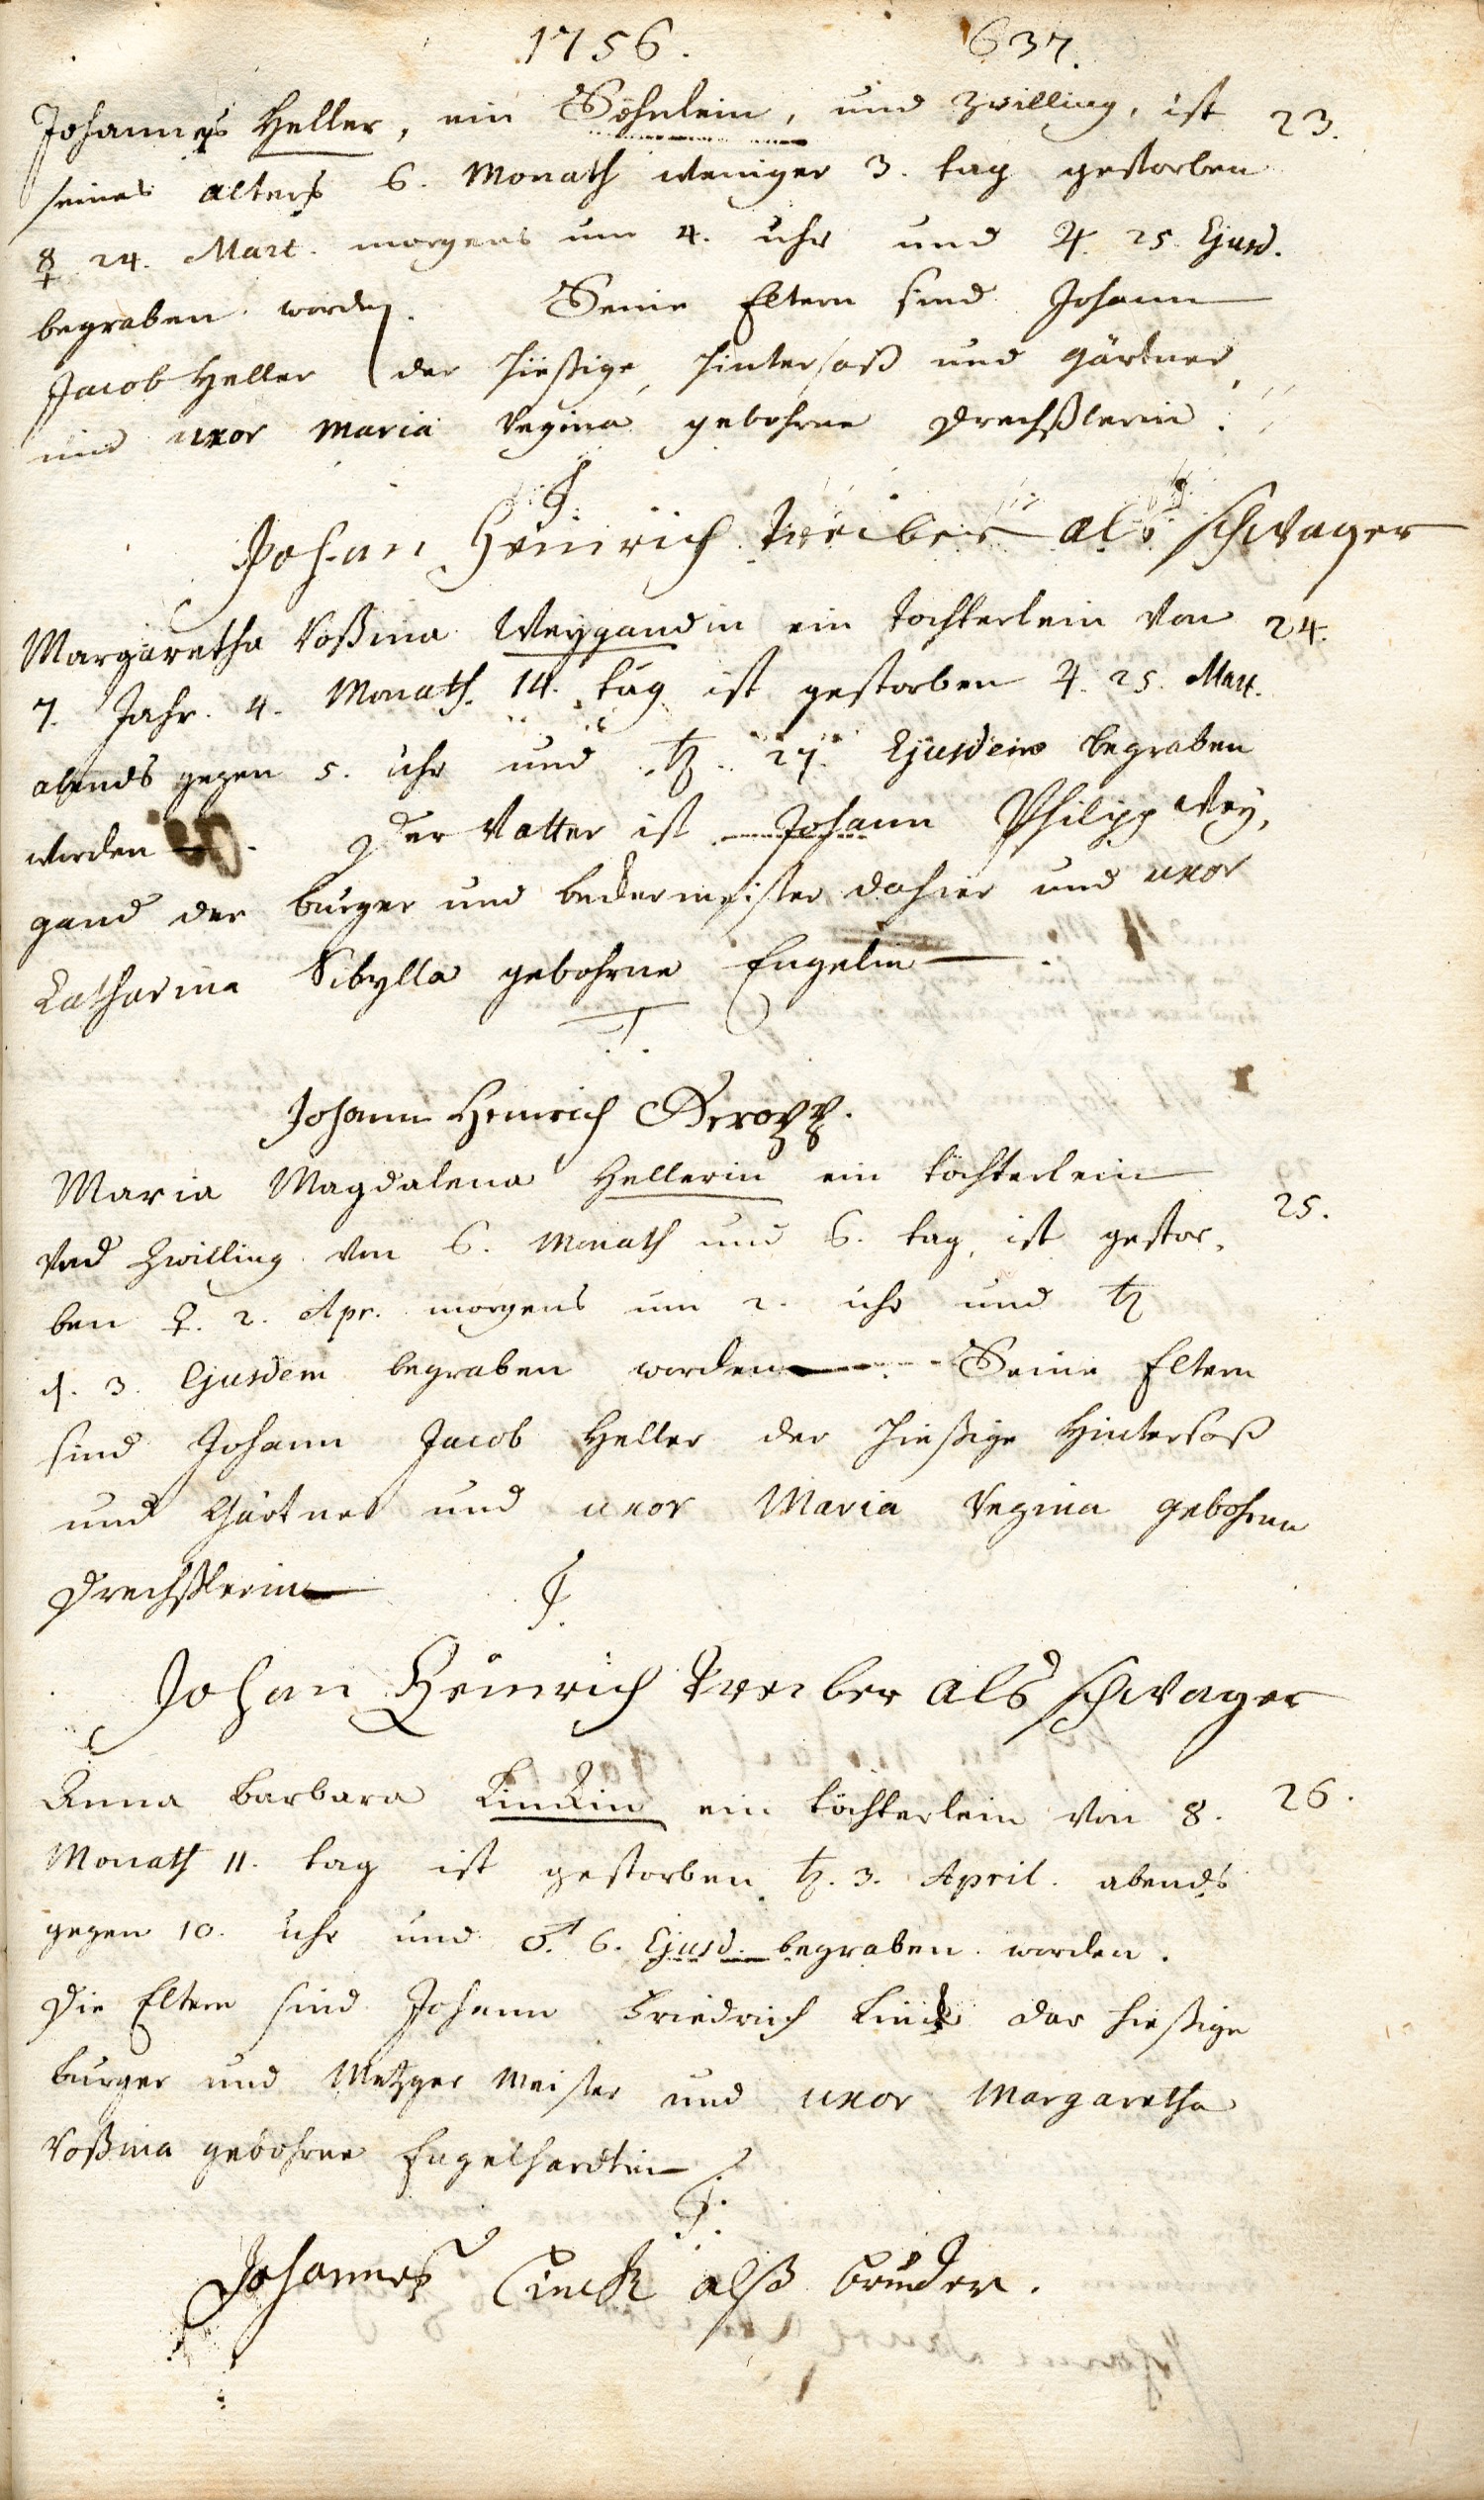 1756. 637.
Johannes Heller, ein Söhnlein, und Zwilling, ist 23.
seines alters 6. Monath weniger 3. tag gestorben
☿ 24. Mart. morgens um 4. uhr und ♃. 25. Ejusd.
begraben worden. Seine Eltern sind Johann
Jacob Heller der hießige hintersaß und Gärtner
und uxor Maria Regina gebohrne Drechßlerin.
Johan Heinrich Treiber als schwager
Margaretha Roßina Weygandin ein tochterlein von 24.
7. Jahr. 4. Monath. 14. tag ist gestorben ♃. 25. Mart.
abends gegen 5. uhr und ♄. 27. Ejusdem begraben
worden. Der Vatter ist Johann Philipp Wey,
gand der burger und dahier und uxor
Catharina Sibylla gebohrne Engelin
Johann Heinrich
Maria Magdalena Hellerin ein töchterlein
und Zwilling von 6. Monath und 6. tag, ist gestor, 25.
ben ♀. 2. Apr. morgens um 2. uhr und ♄
d. 3. Ejusdem begraben worden. Seine Eltern
sind Johann Jacob Heller der hießige Hintersaß
und Gärtner und uxor Maria Regina gebohrne
Drechßlerin
Johan Heinrich Treiber als schwager
Anna Barbara Linckin ein töchterlein von 8. 26.
Monath 11. tag ist gestorben ♄. 3. April. abends
gegen 10. uhr und ♂. 6. Ejusd. begraben worden.
Die Eltern sind Johann Friedrich Linck der hießige
burger und Metzger Meister und uxor Margaretha
Roßina gebohrne Engelhardtin
Johannes Linck alß bruder.